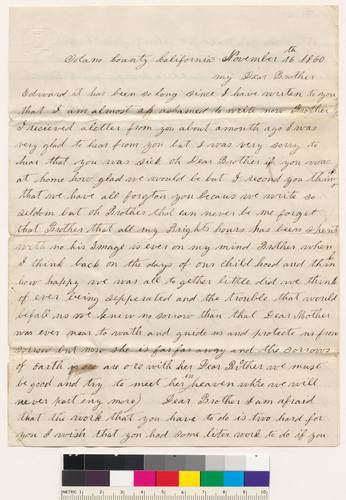 Solano County California November 16th 1860
my Dear Brother
Edward it has been so long since I have writen to you
that I am almost ashamed to write now Brother
I recieved a letter from you about a month ago I was
very glad to hear from you but I was very sorry to
hear that you was sick oh Dear Brother if you was
at home how glad we would be but I recond you think
that we have all forgton you becaus we write so
seldom but oh Brother that can never be me forget
that Brother that all my Brights hours has been spent
with no his Image is ever on my mind Brother when
I think back on the days of our child hood and think
how happy we was all to gether little did we think
of ever being sepperated and the trouble that would
befall us we knew no sorrow than that Dear Mother
was ever near to wath and guide us and protecte us from
sorrow but now she is far far away and the sorrows
of Earth are ore with her Dear Bother we must
be good and try to meet her in heaven whire we will
never part eny more) Dear Brother I am afraid
that the work that you have to do is two hard for
you I wish that you had some liter work to do if you
METRIC 1 2 3 4 5 6 7 8 9 10 11 12 13 14 15